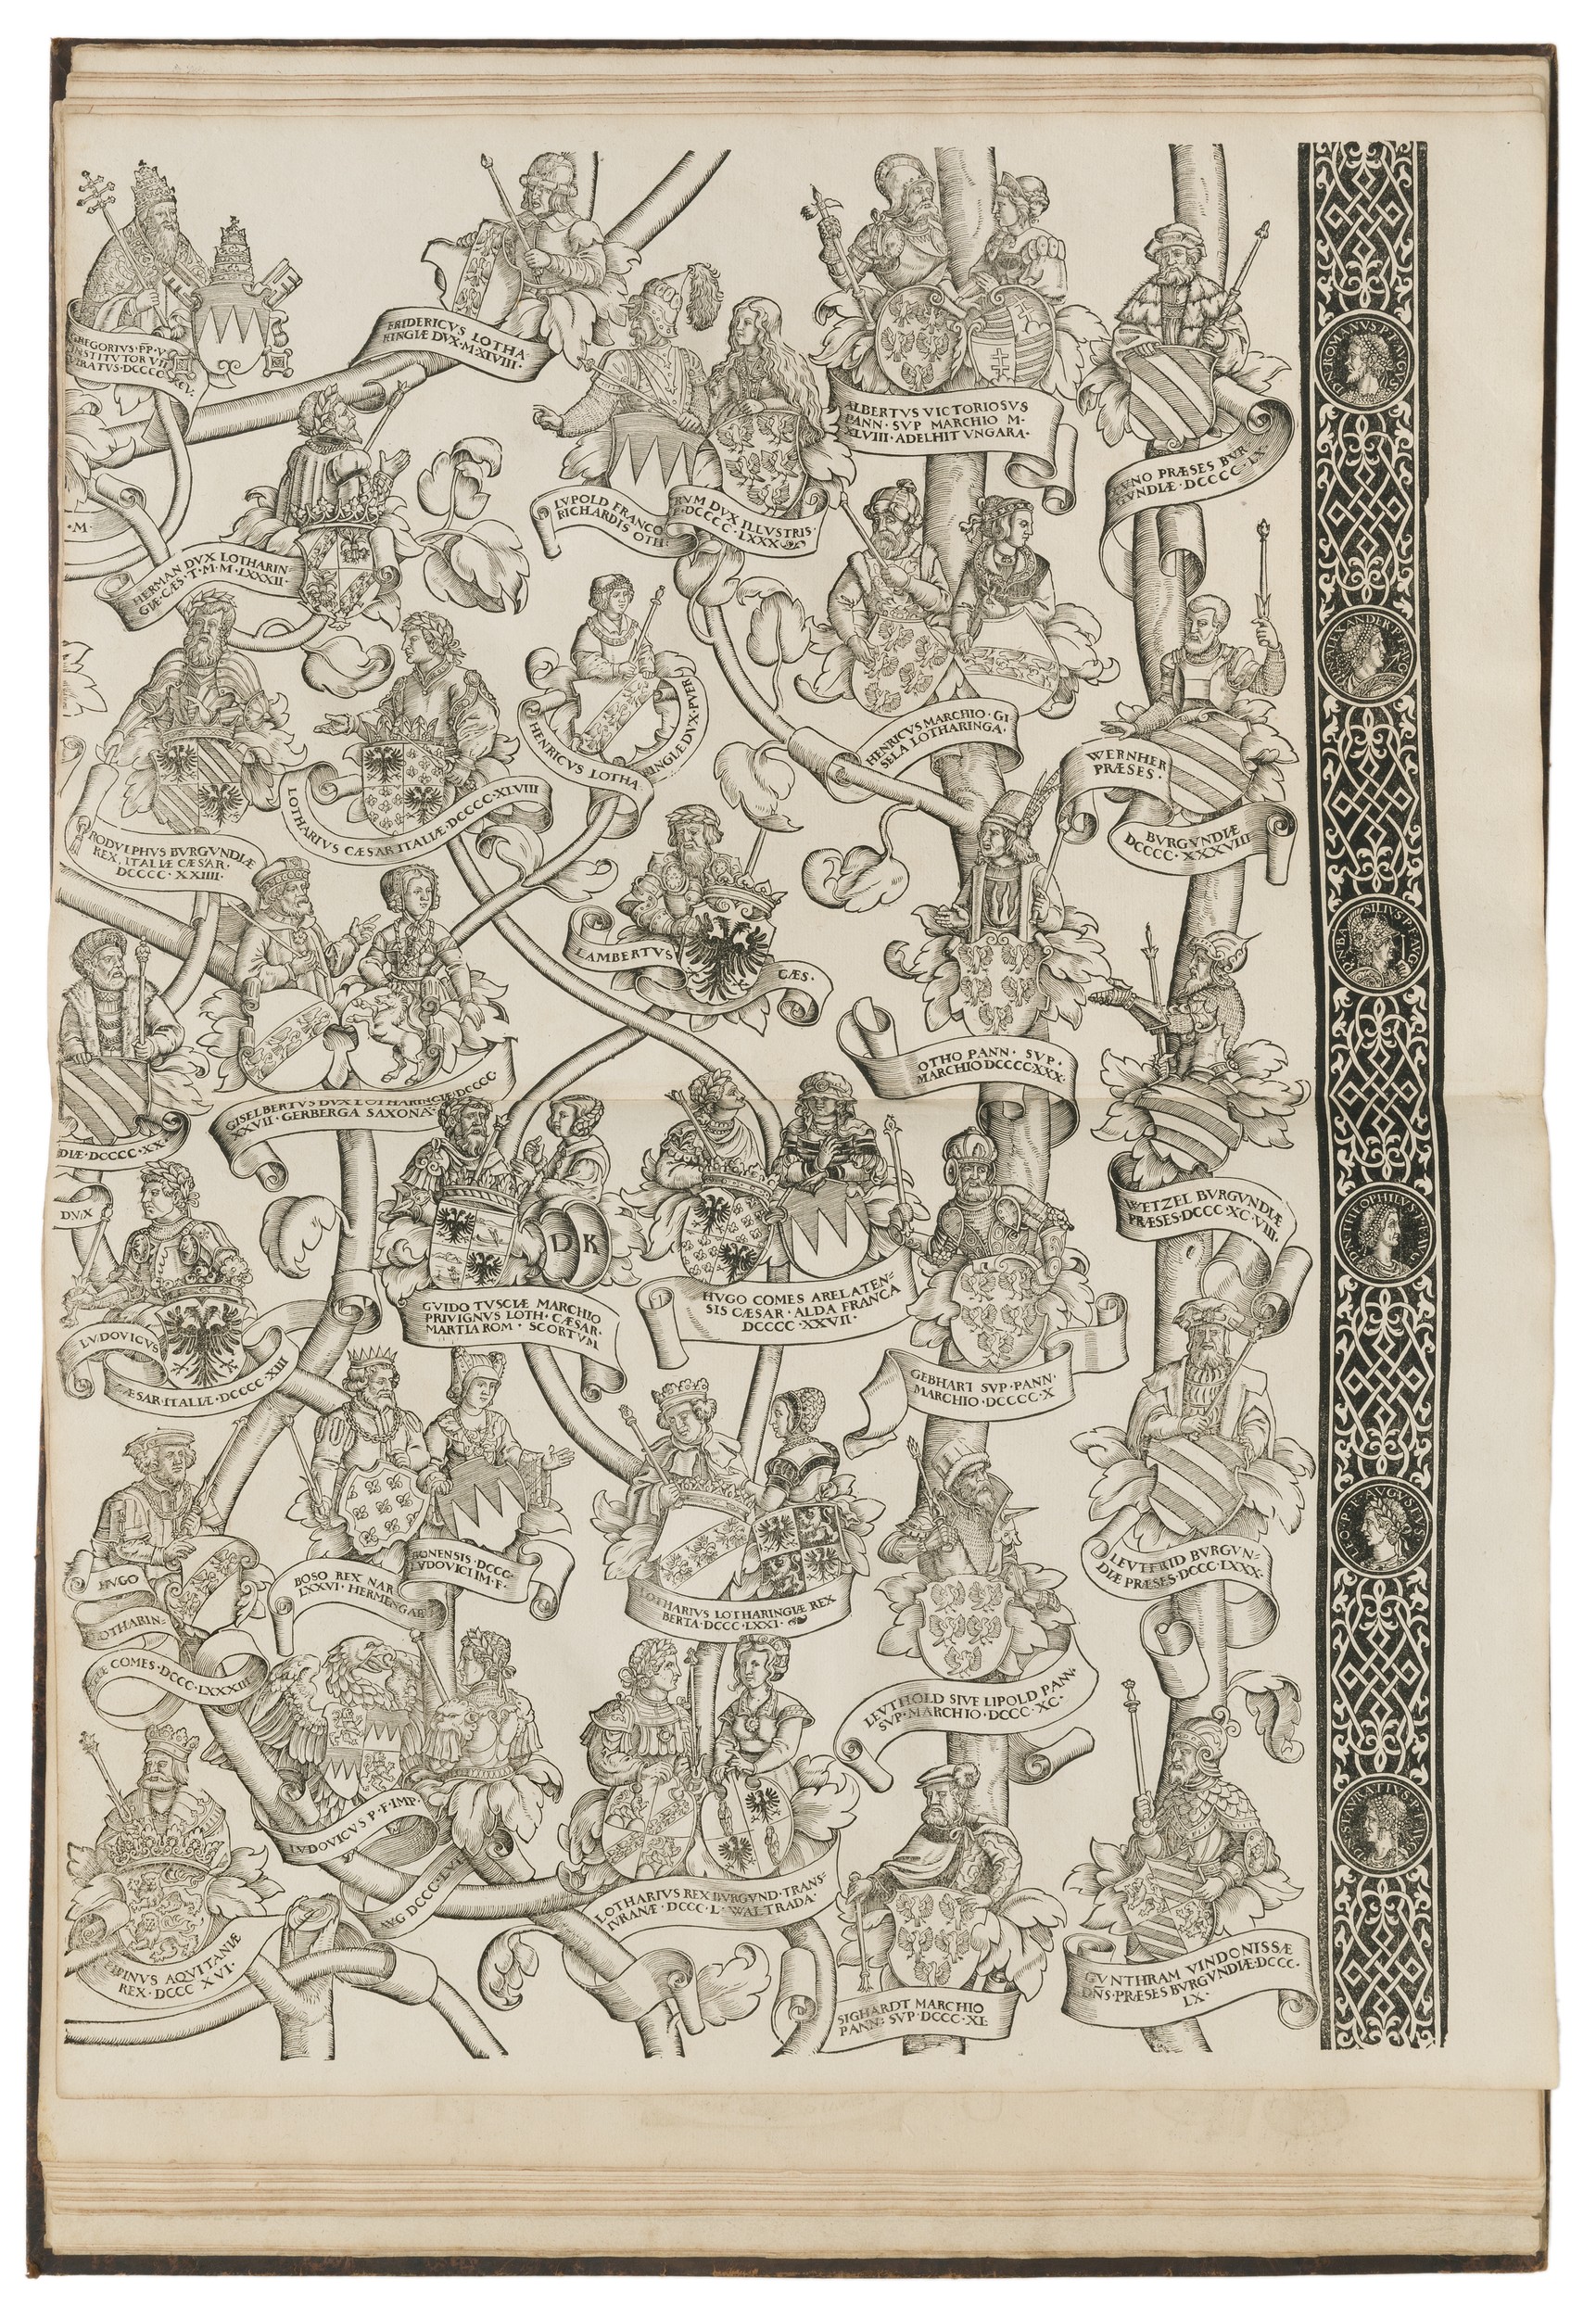 GREGORIVS·P̄P·V·
INSTITVTOR VII
DCCCC·XCV·
FRIDERICVS LOTHA-
RINGIÆ DVX·M·XIVIII·
ALBERTVS VICTORIOSVS
PANN·SVP MARCHIO M·
XLVIII·ADELHIT VNGARA·
CVNO PRÆSES BVR
GVNDIÆ·DCCCC·LX·
LVPOLD FRANCO
RVM DVX ILLVSTRIS·
RICHARDIS OTH·
F·DCCCC·LXXX
·M·
HERMAN DVX LOTHARIN-
GIÆ·CÆS·T·M·M·LXXXII·
HENRICVS LOTHA
RINGIÆ DVX·PVER
HENRICVS MARCHIO·GI
SELA LOTHARINGA·
WERNHER
PRÆSES·
BVRGVNDIÆ
DCCCC·XXXVIII
RODVLPHVS BVRGVNDIÆ
REX·ITALIÆ CÆSAR·
DCCCC·XXIIII·
LOTHARIVS CÆSAR ITALIÆ·DCCCC·XLVIII
LAMBERTVS
CÆS·
OTHO PANN·SVP·
MARCHIO DCCCC·XXX·
GISELBERTVS DVX LOTHARINGIÆ DCCCC·
XXVII·GERBERGA SAXONA·
DIÆ·DCCCC·XX
DVX
WETZEL BVRGVNDIÆ
PRÆSES·DCCC·XC·VIII·
GVIDO TVSCIÆ MARCHIO
PRIVIGNVS LOTH·CÆSAR·
MARTIA ROM·SCORTVM
D K
HVGO COMES ARELATEN=
SIS CÆSAR·ALDA FRANCA
DCCCC·XXVII·
LVDOVICVS
CÆSAR·ITALIÆ·DCCCC·XIII
GEBHART SVP·PANN·
MARCHIO·DCCCC·X
HVGO
LOTHARIN=
GIÆ COMES·DCCC·LXXXIII
BOSO REX NAR
BONENSIS·DCCC·
LXXVI·HERMENGAR
LVDOVICI IM·F·
LOTHARIVS LOTHARINGIÆ REX
BERTA·DCCC·LXXI·
LEVTFRID BVRGVN=
DIÆ PRÆSES·DCCC·LXXX·
LEVTHOLD SIVE LIPOLD PANN·
SVP·MARCHIO·DCCC·XC·
LVDOVICVS P·F·IMP·
AVG DCCC·
LOTHARIVS REX BVRGVND·TRANS-
IVRANÆ·DCCC·L·WALTRADA·
PIPINVS AQVITANIÆ
REX·DCCC XVI·
SIGHARDT MARCHIO
PANN·SVP·DCCC·XI·
GVNTHRAM VINDONISSÆ
DN̄S·PRÆSES BVRGVNDIÆ·DCCC·
LX·